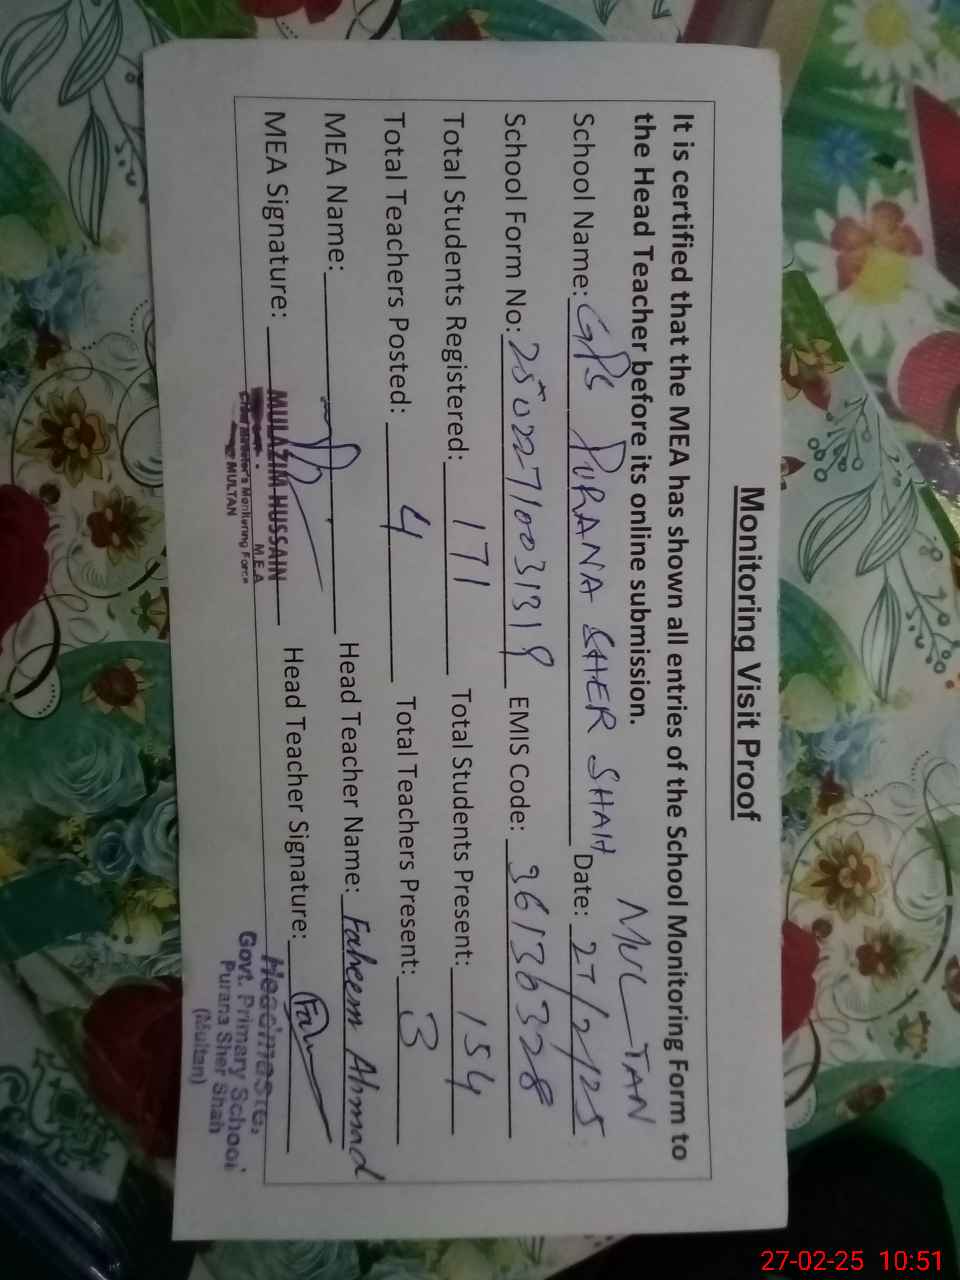 Monitoring Visit Proof
It is certified that the MEA has shown all entries of the School Monitoring Form to
the Head Teacher before its online submission.
MULTAN
School Name: GPS PURANA SHER SHAH Date: 27/2/25
School Form No: 2502271003131 EMIS Code: 36136328
Total Students Registered: 171 Total Students Present: 154
Total Teachers Posted: 4 Total Teachers Present: 3
MEA Name: Head Teacher Name: Faheem Ahmad
MEA Signature: Head Teacher Signature:
MULAZIM HUSSAIN
M.E.A
Chief Minister's Monitoring Force
MULTAN
Headmaster
Govt. Primary School
Purana Sher Shah
(Multan)
27-02-25 10:51